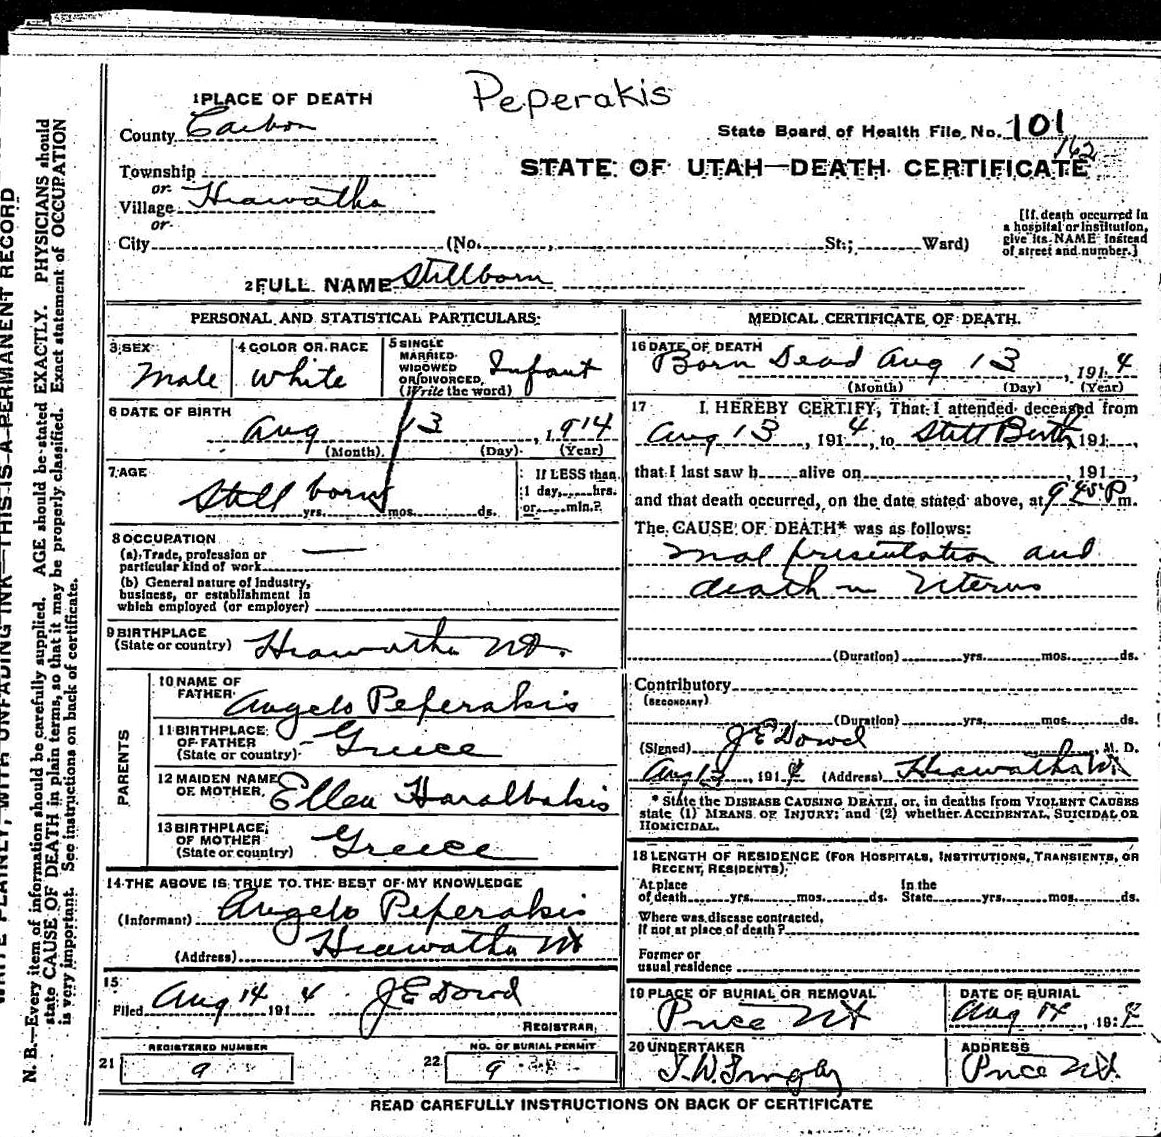 Peperakis
1 PLACE OF DEATH
County Carbon
State Board of Health File No. 101
162
Township
STATE OF UTAH—DEATH CERTIFICATE
or
Village Hiawatha
or
City (No. , St.; Ward)
[If death occurred in
a hospital or institution,
give its NAME instead
of street and number.]
2 FULL NAME Stillborn
PERSONAL AND STATISTICAL PARTICULARS
3 SEX
Male
4 COLOR OR RACE
White
5 SINGLE
MARRIED
WIDOWED
OR DIVORCED
(Write the word)
Infant
6 DATE OF BIRTH
Aug 13, 1914
(Month) (Day) (Year)
7 AGE
Still born
yrs. mos. ds.
If LESS than
1 day, hrs.
or min.?
8 OCCUPATION
(a) Trade, profession or
particular kind of work —
(b) General nature of industry,
business, or establishment in
which employed (or employer)
9 BIRTHPLACE
(State or country) Hiawatha Ut.
PARENTS
10 NAME OF
FATHER Angelo Peperakis
11 BIRTHPLACE
OF FATHER
(State or country) Greece
12 MAIDEN NAME
OF MOTHER Ellen Haralbakis
13 BIRTHPLACE
OF MOTHER
(State or country) Greece
14 THE ABOVE IS TRUE TO THE BEST OF MY KNOWLEDGE
(Informant) Angelo Peperakis
(Address) Hiawatha Ut
15
Filed Aug 14 1914 J E Dowd
REGISTRAR
REGISTERED NUMBER
21 9
NO. OF BURIAL PERMIT
22 9
MEDICAL CERTIFICATE OF DEATH
16 DATE OF DEATH
Born Dead Aug 13, 1914
(Month) (Day) (Year)
17 I HEREBY CERTIFY, That I attended deceased from
Aug 13, 1914, to Still Birth 191
that I last saw h alive on 191
and that death occurred, on the date stated above, at 9 45 P m.
The CAUSE OF DEATH* was as follows:
Mal presentation and
death in Uterus
(Duration) yrs. mos. ds.
Contributory
(SECONDARY)
(Duration) yrs. mos. ds.
(Signed) J E Dowd, M. D.
Aug 13, 1914 (Address) Hiawatha Ut
* State the DISEASE CAUSING DEATH, or, in deaths from VIOLENT CAUSES
state (1) MEANS OF INJURY; and (2) whether ACCIDENTAL, SUICIDAL OR
HOMICIDAL.
18 LENGTH OF RESIDENCE (FOR HOSPITALS, INSTITUTIONS, TRANSIENTS, OR
RECENT RESIDENTS)
At place
of death yrs. mos. ds.
In the
State yrs. mos. ds.
Where was disease contracted,
If not at place of death?
Former or
usual residence
19 PLACE OF BURIAL OR REMOVAL
Price Ut
DATE OF BURIAL
Aug 14, 1914
20 UNDERTAKER
ADDRESS
Price Ut.
READ CAREFULLY INSTRUCTIONS ON BACK OF CERTIFICATE
WRITE PLAINLY, WITH UNFADING INK—THIS IS A PERMANENT RECORD
N. B.—Every item of information should be carefully supplied. AGE should be stated EXACTLY. PHYSICIANS should
state CAUSE OF DEATH in plain terms, so that it may be properly classified. Exact statement of OCCUPATION
is very important. See instructions on back of certificate.